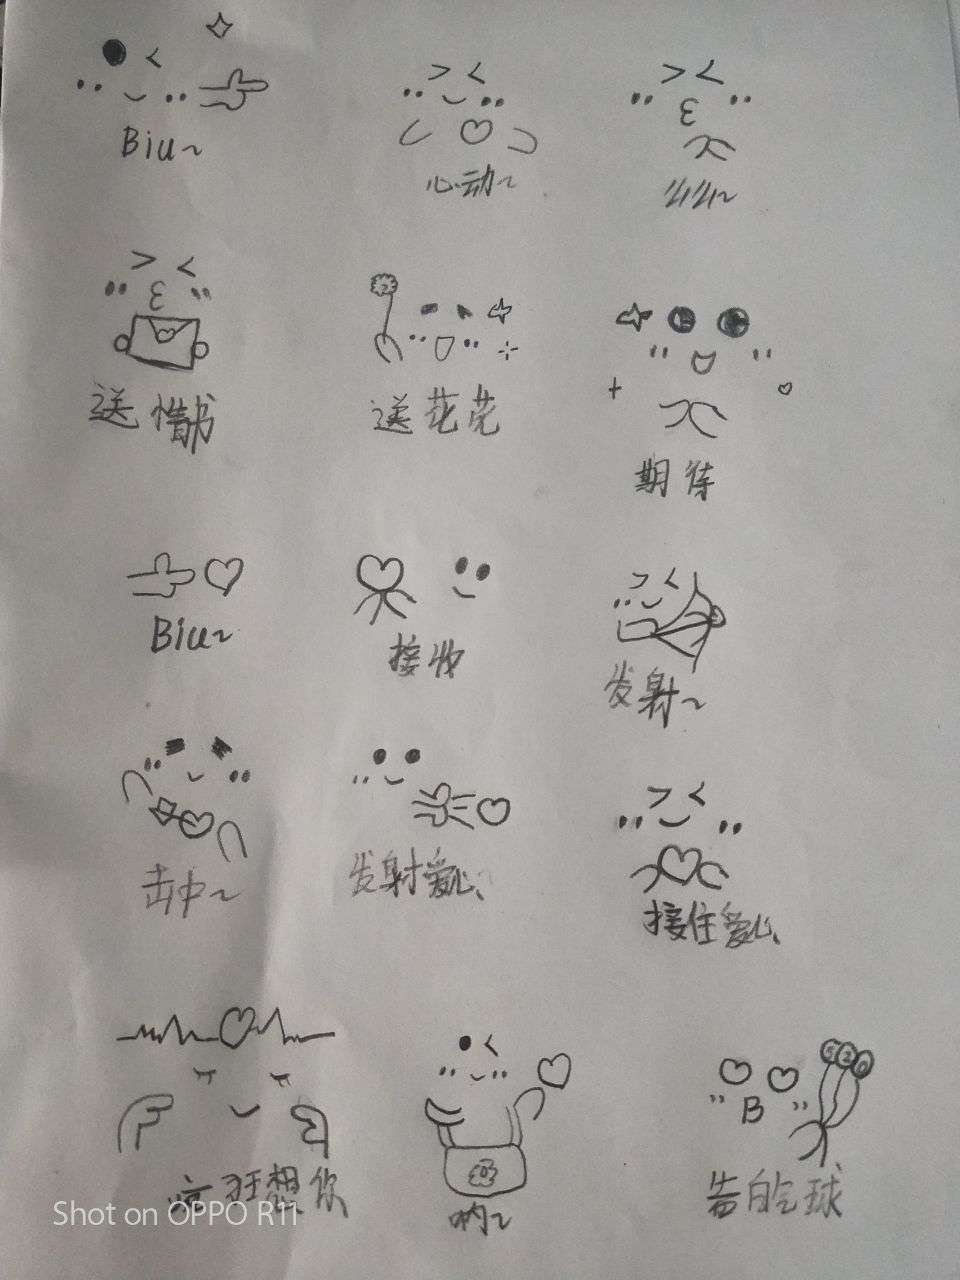 Biu~
心动~
幺幺~
送情书
送花花
期待
Biu~
接收
发射~
击中~
发射爱心
接住爱心
疯狂想你
呐~
520
告白气球
Shot on OPPO R11